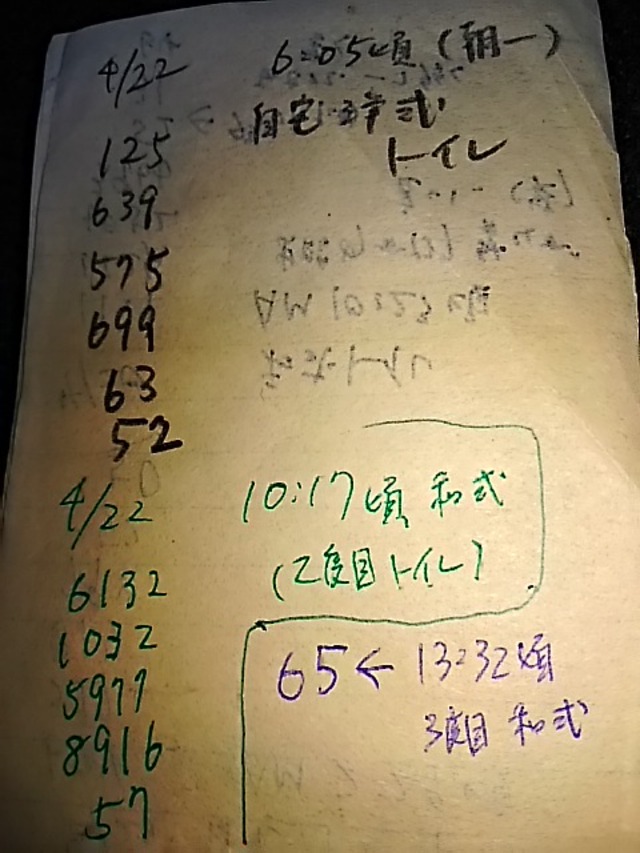 4/22 6:05頃(朝一)
125 自宅洋式
トイレ
639
575
699
63
52
4/22 10:17頃 和式
6132 (2度目トイレ)
1032
5977
8916
57
65← 13:32頃
3度目 和式